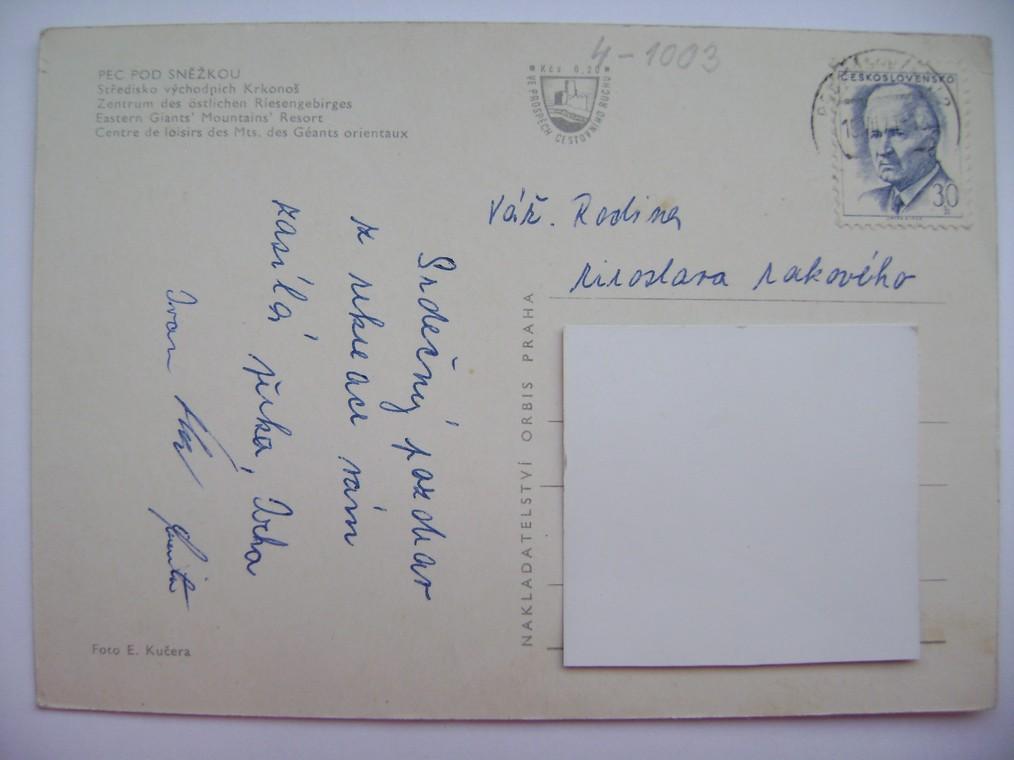 PEC POD SNĚŽKOU
Středisko východních Krkonoš
Zentrum des östlichen Riesengebirges
Eastern Giants' Mountains' Resort
Centre de loisirs des Mts. des Géants orientaux
4-1003
Kčs 0,20
VE PROSPĚCH CESTOVNÍHO RUCHU
ČESKOSLOVENSKO
30
Váž. Rodina
Miroslava Rakového
Srdečný pozdrav
z rekreace vám
zasílá
Ivan
NAKLADATELSTVÍ ORBIS PRAHA
Foto E. Kučera